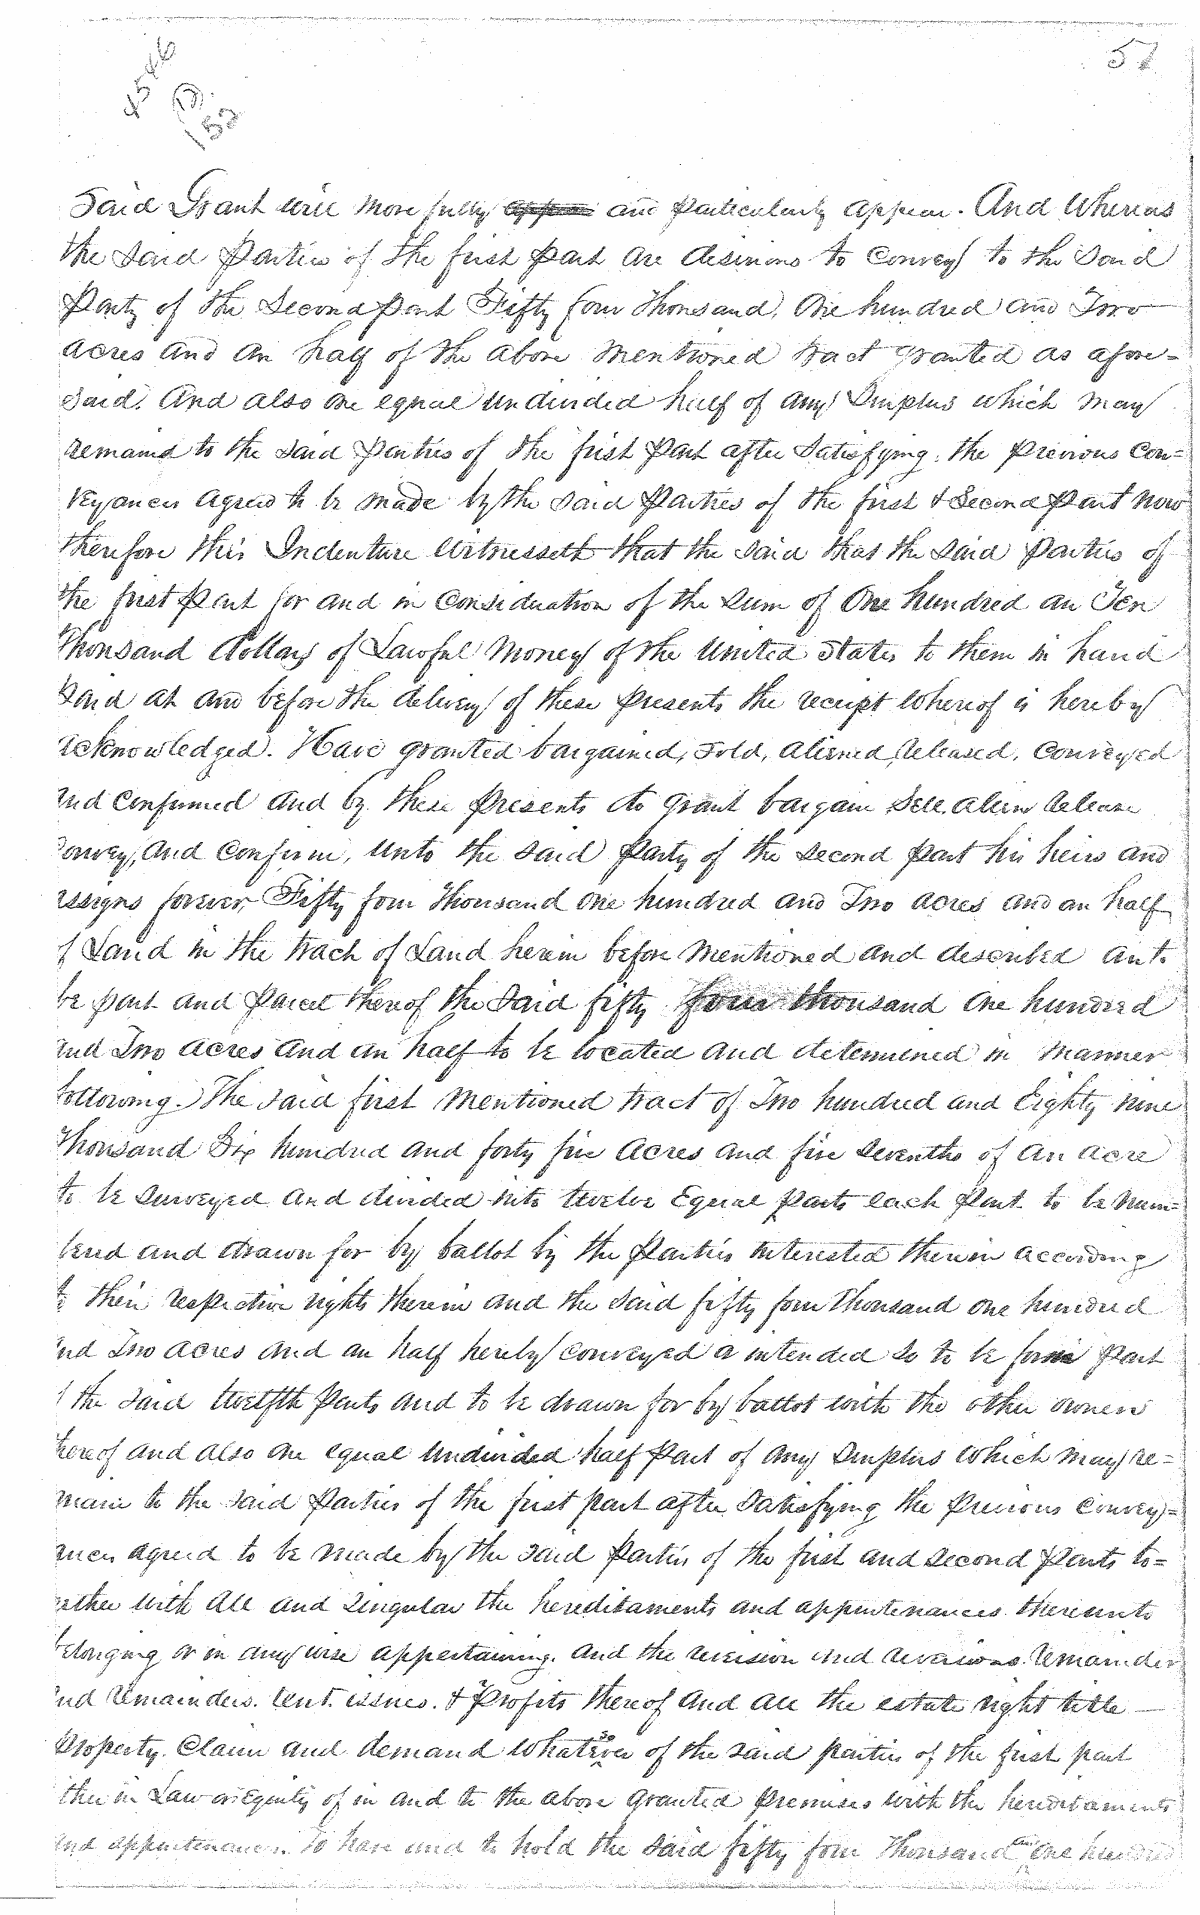 57
Said Grant will more fully and particularly appear. And Whereas
the Said Parties of the first part are desirious to Convey to the Said
Party of the Second part Fifty four Thousand, One hundred and Two
acres and an half of the above mentioned tract granted as afore=
said. And also one equal undivided half of any Surplus which may
remaind to the said Parties of the first Part after Satisfying, the previous Con=
veyances agreed to be made by the said Parties of the first & Second Part now
therefore this Indenture Witnesseth that the said that the said Parties of
the first Part for and in consideration of the sum of One hundred an Ten
Thousand Dollars of Lawful Money of the United States to them in hand
Paid at and before the delivery of these presents the receipt whereof is hereby
acknowledged. Have granted bargained, sold, aliened, released, conveyed
and confirmed and by these presents do grant bargain Sell, alien release
Convey, and Confirm, unto the said Party of the second part his heirs and
assigns forever, Fifty four Thousand one hundred and Two acres and an half
of Land in the tract of Land herein before mentioned and described an to
be part and Parcel thereof the said fifty four thousand One hundred
and Two acres and an half to be located and determined in manner
following. The said first mentioned tract of Two hundred and Eighty nine
Thousand Six hundred and forty five acres and five sevenths of an acre
to be surveyed and divided into twelve Equal parts each part to be num=
bered and drawn for by ballot by the Parties interested therein according
to their respective rights therein and the said fifty four Thousand one hundred
and Two acres and an half hereby conveyed a intended so to be part
of the said twelfth parts and to be drawn for by ballot with the other owners
thereof and also one equal undivided half part of any Surplus which may re=
main to the said Parties of the first part after Satisfying the previous convey=
ances agreed to be made by the said parties of the first and second Parts to=
gether with all and singular the hereditaments and appurtenances thereunto
belonging or in any wise appertaining. and the revision and reversions. remainder
and remainders. rent. issues. & Profits thereof and all the estate right title —
Property Claim and demand whatsoever of the said parties of the first part
either in Law or Equity of in and to the above granted premises with the hereditaments
and appurtenances. To have and to hold the said fifty four Thousand and One hundred